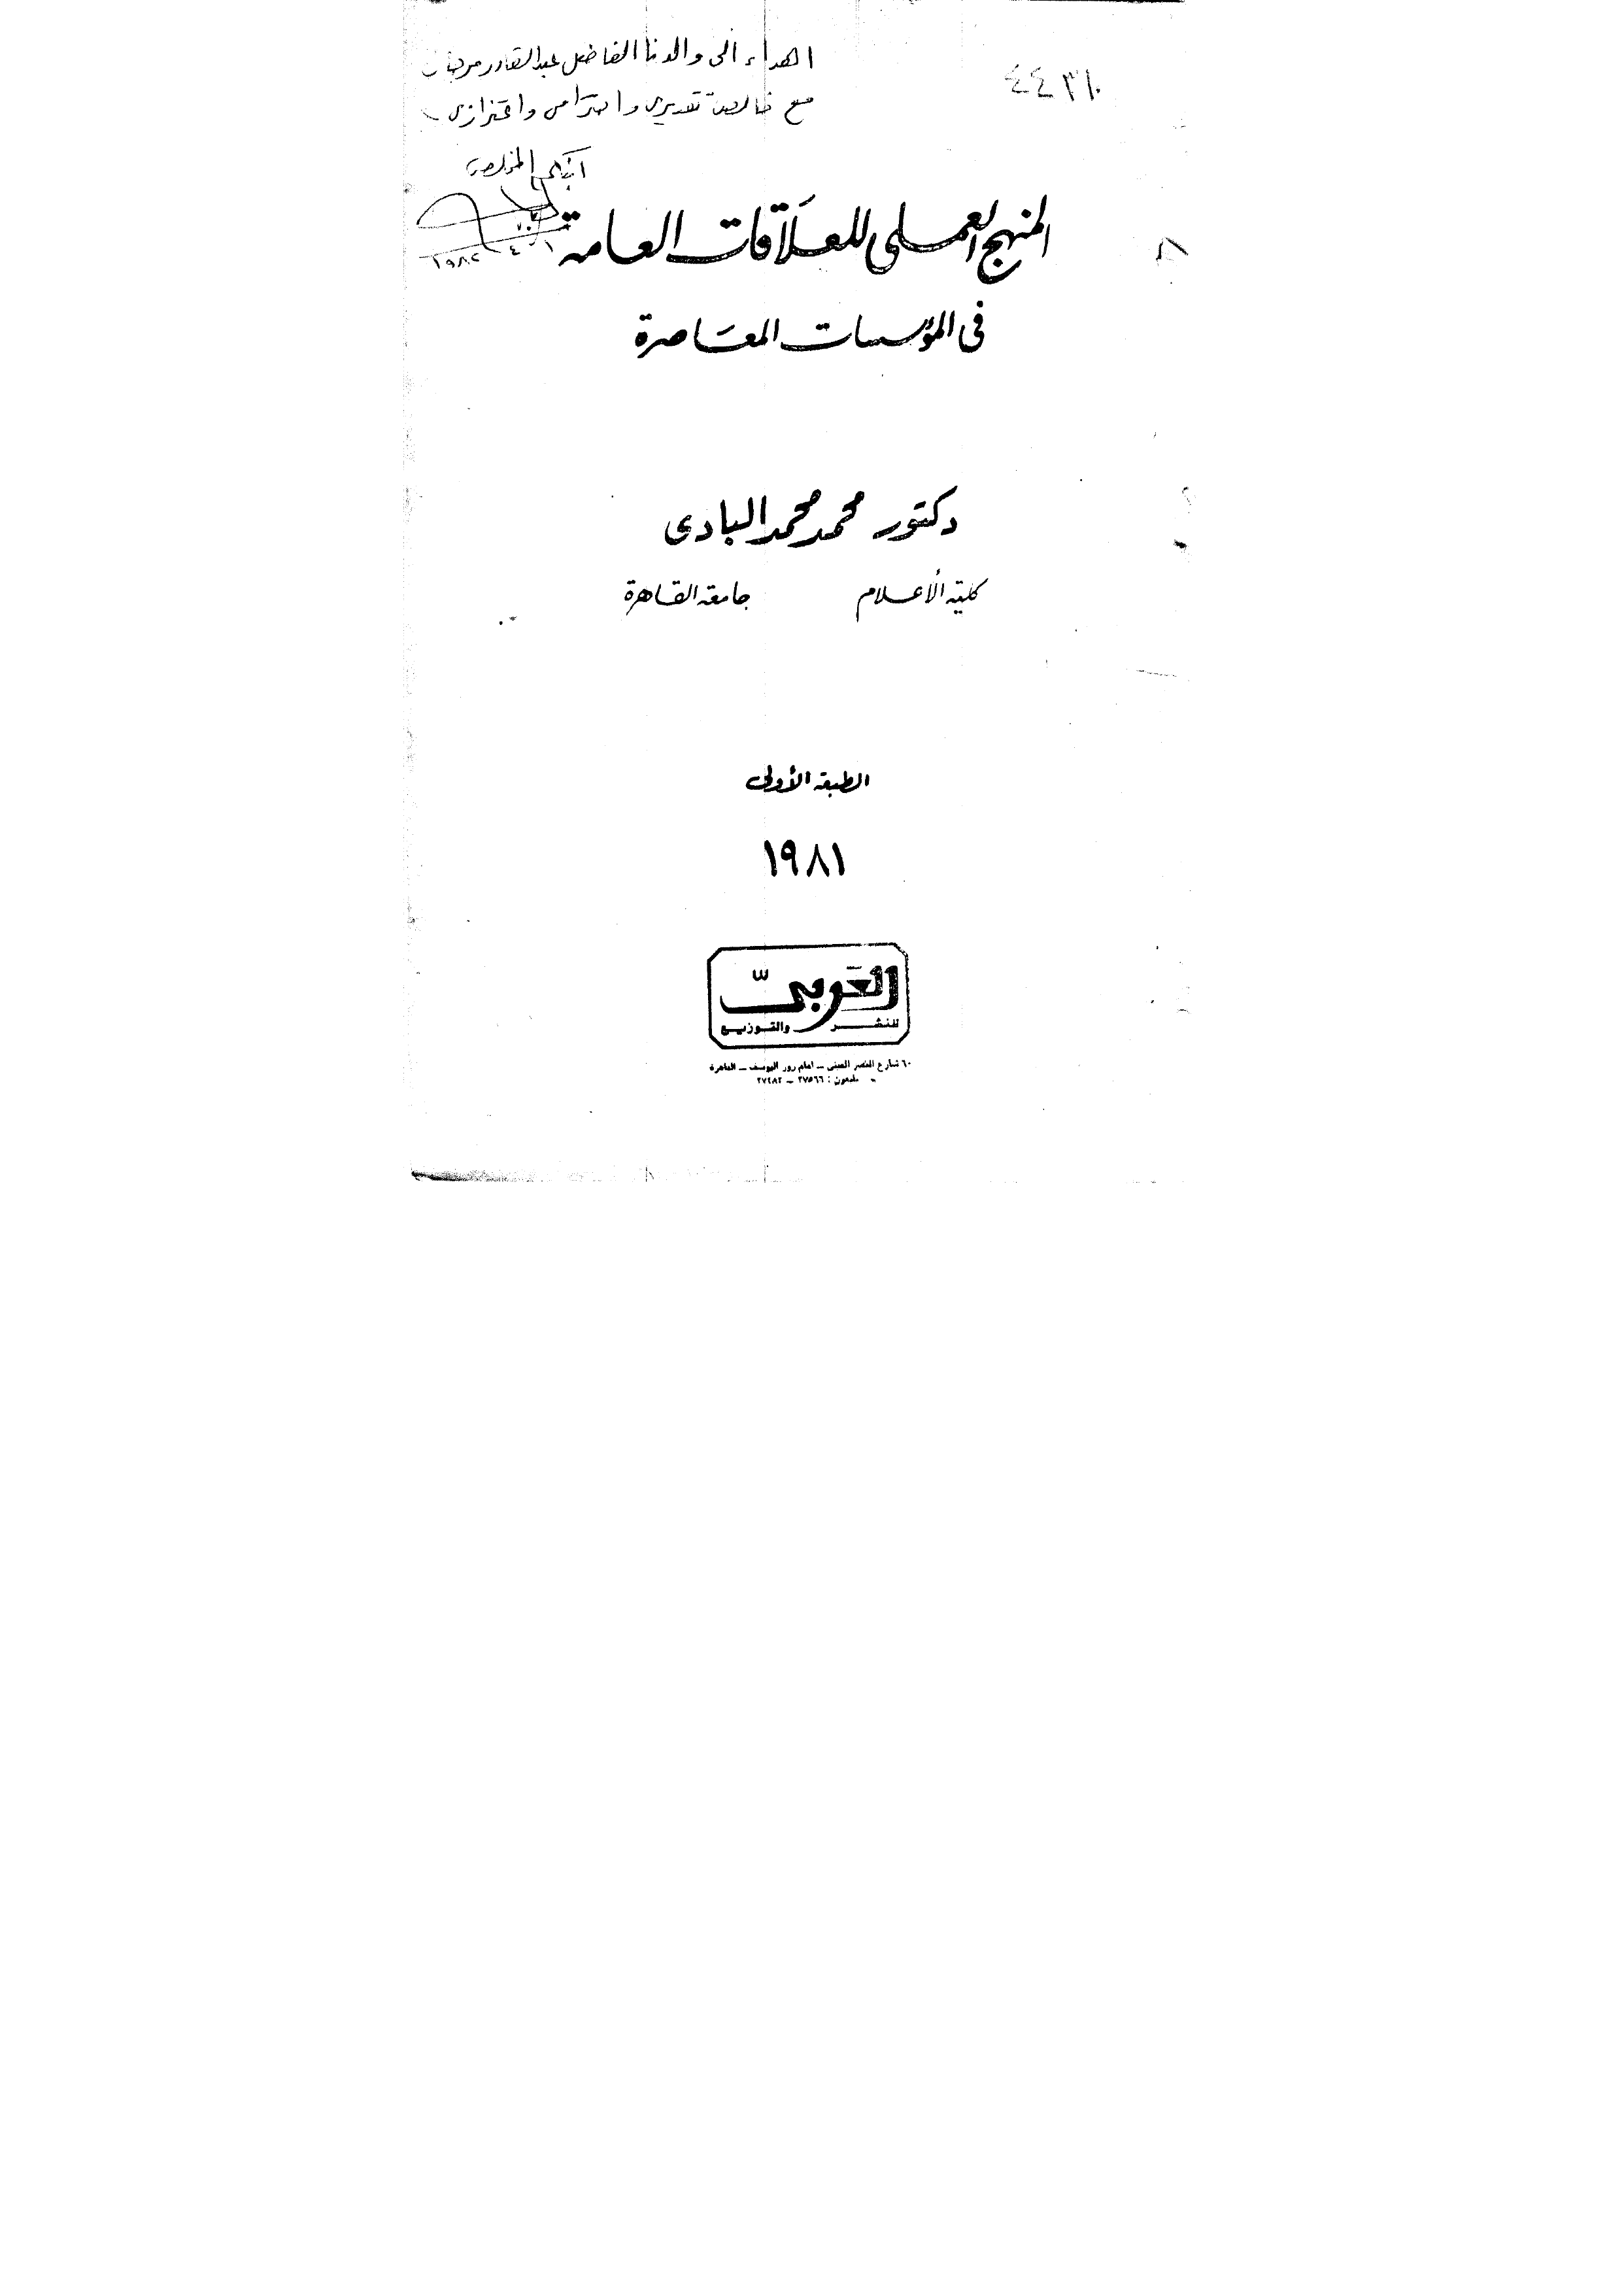 اهداء الى والدنا الفاضل عبدالقادر
٤٤٣١٠
مع خالص تقديري واحترامي واعتزازي
ابنكم المخلص
المنهج العملى للعلاقات العامة
١٩٨٢
فى المؤسسات المعاصرة
دكتور محمد محمد البادى
كلية الأعلام جامعة القاهرة
الطبعة الأولى
١٩٨١
العربىّ
للنشر والتوزيع
٦٠ شارع القصر العينى ــ امام روز اليوسف ــ القاهرة
تليفون : ٢٧٥٦٦ ــ ٢٧٤٨٢